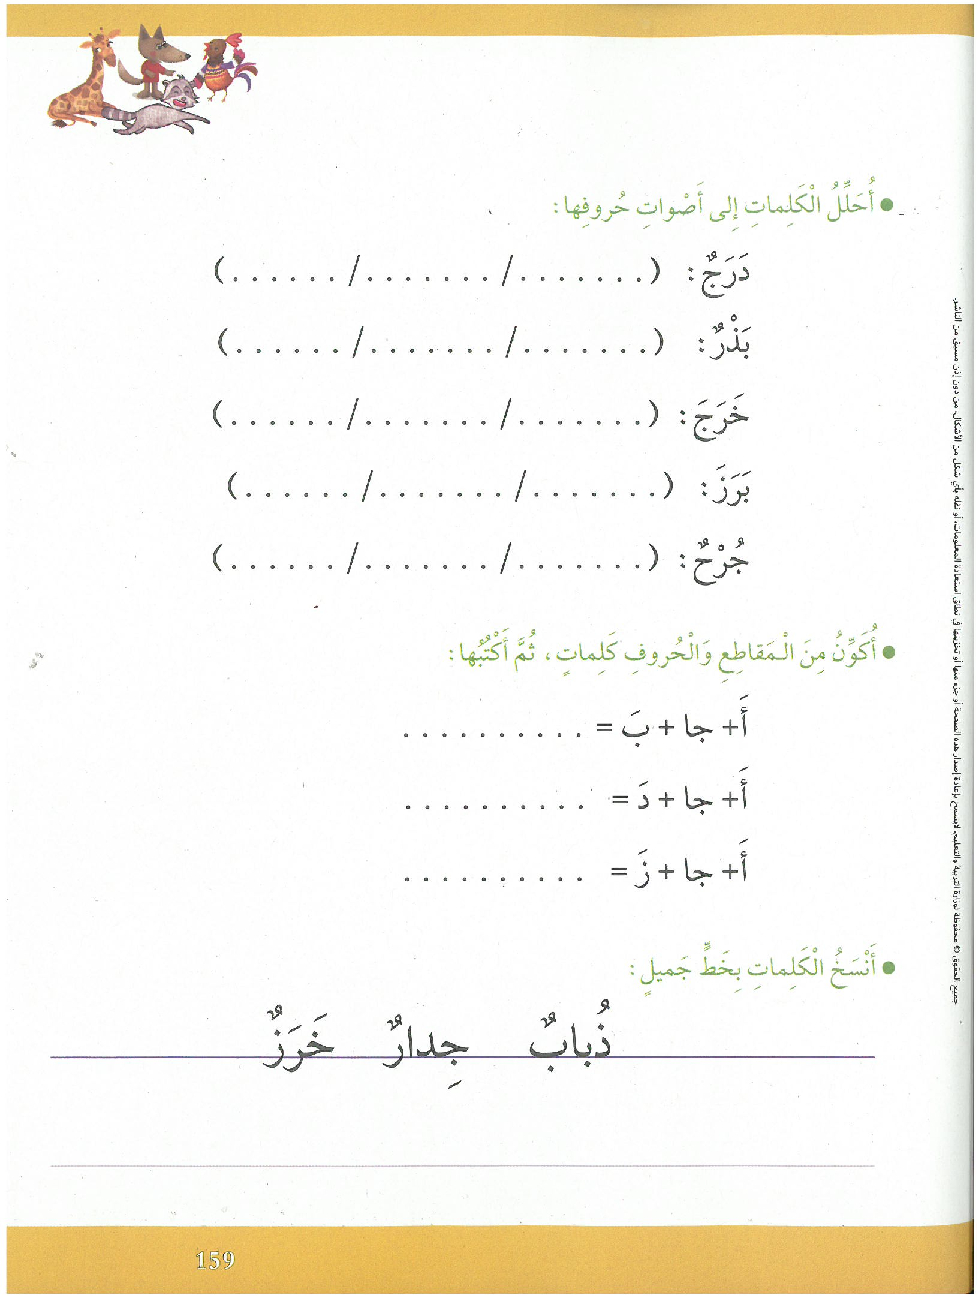 • أُحَلِّلُ الْكَلِماتِ إِلى أَصْواتِ حُروفِها:
دَرَجٌ: (. . . . . . ./. . . . . . ./. . . . . .)
بَذْرٌ: (. . . . . . ./. . . . . . ./. . . . . .)
خَرَجَ: (. . . . . . ./. . . . . . ./. . . . . .)
بَرَزَ: (. . . . . . ./. . . . . . ./. . . . . .)
جُرْحٌ: (. . . . . . ./. . . . . . ./. . . . . .)
• أُكَوِّنُ مِنَ الْمَقاطِعِ وَالْحُروفِ كَلِماتٍ، ثُمَّ أَكْتُبُها:
أَ+ جا + بَ = . . . . . . . . . .
أَ+ جا + دَ = . . . . . . . . . .
أَ+ جا + زَ = . . . . . . . . . .
• أَنْسَخُ الْكَلِماتِ بِخَطٍّ جَميلٍ:
ذُبابٌ جِدارٌ خَرَزٌ
159
جميع الحقوق © محفوظة لوزارة التربية والتعليم. لايسمح بإعادة إصدار هذه الصفحة أو جزء منها أو تخزينها في نطاق استعادة المعلومات، أو نقله بأي شكل من الأشكال، من دون إذن مسبق من الناشر.